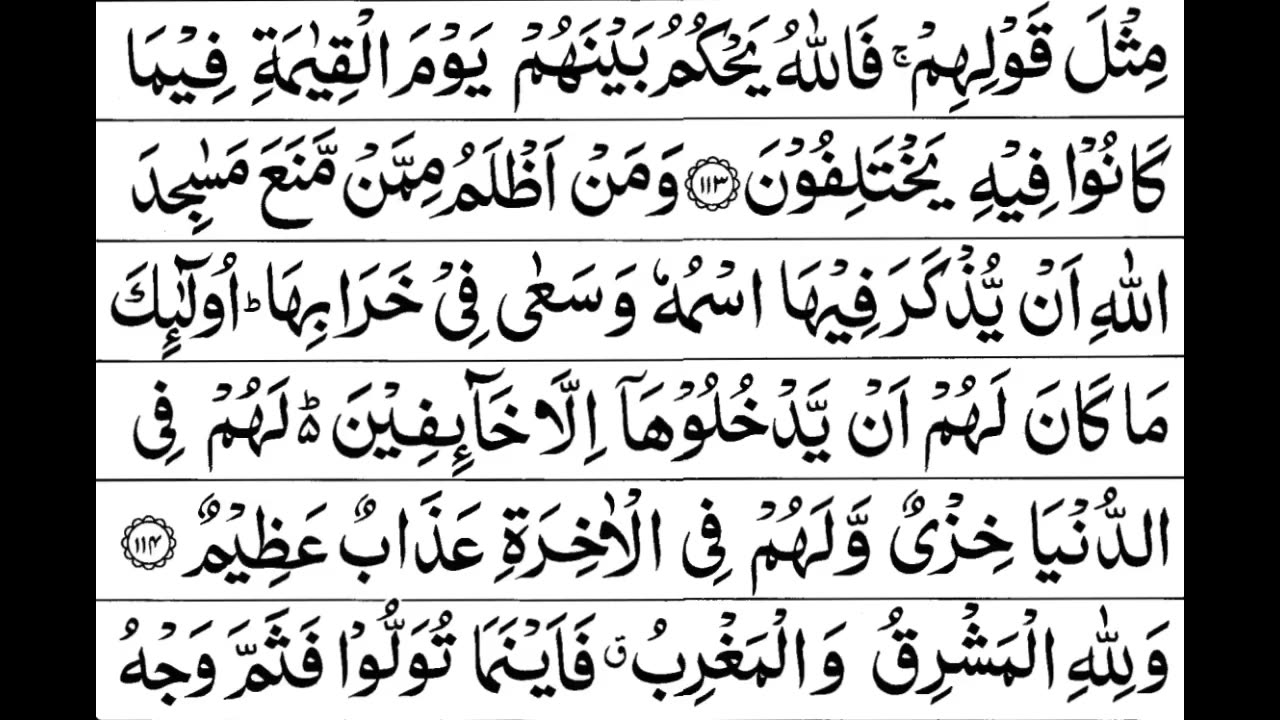 مِثْلَ قَوْلِهِمْ ۚ فَاللّٰهُ يَحْكُمُ بَيْنَهُمْ يَوْمَ الْقِيٰمَةِ فِيْمَا
كَانُوْا فِيْهِ يَخْتَلِفُوْنَ ﴿۱۱۳﴾ وَمَنْ اَظْلَمُ مِمَّنْ مَّنَعَ مَسٰجِدَ
اللّٰهِ اَنْ يُّذْكَرَ فِيْهَا اسْمُهٗ وَسَعٰى فِيْ خَرَابِهَا ؕ اُولٰٓئِكَ
مَا كَانَ لَهُمْ اَنْ يَّدْخُلُوْهَآ اِلَّا خَآئِفِيْنَ ۵ؕ لَهُمْ فِي
الدُّنْيَا خِزْيٌ وَّلَهُمْ فِي الْاٰخِرَةِ عَذَابٌ عَظِيْمٌ ﴿۱۱۴﴾
وَلِلّٰهِ الْمَشْرِقُ وَالْمَغْرِبُ ق فَاَيْنَمَا تُوَلُّوْا فَثَمَّ وَجْهُ